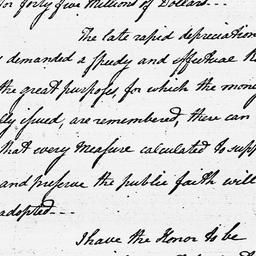 for forty five Millions of Dollars...
The late rapid depreciation
demanded a speedy and effectual
the great purposes, for which the mon
ly issued, are remembered, there can
that every Measure calculated to supp
and preserve the public faith will
adopted---
I have the Honor to be